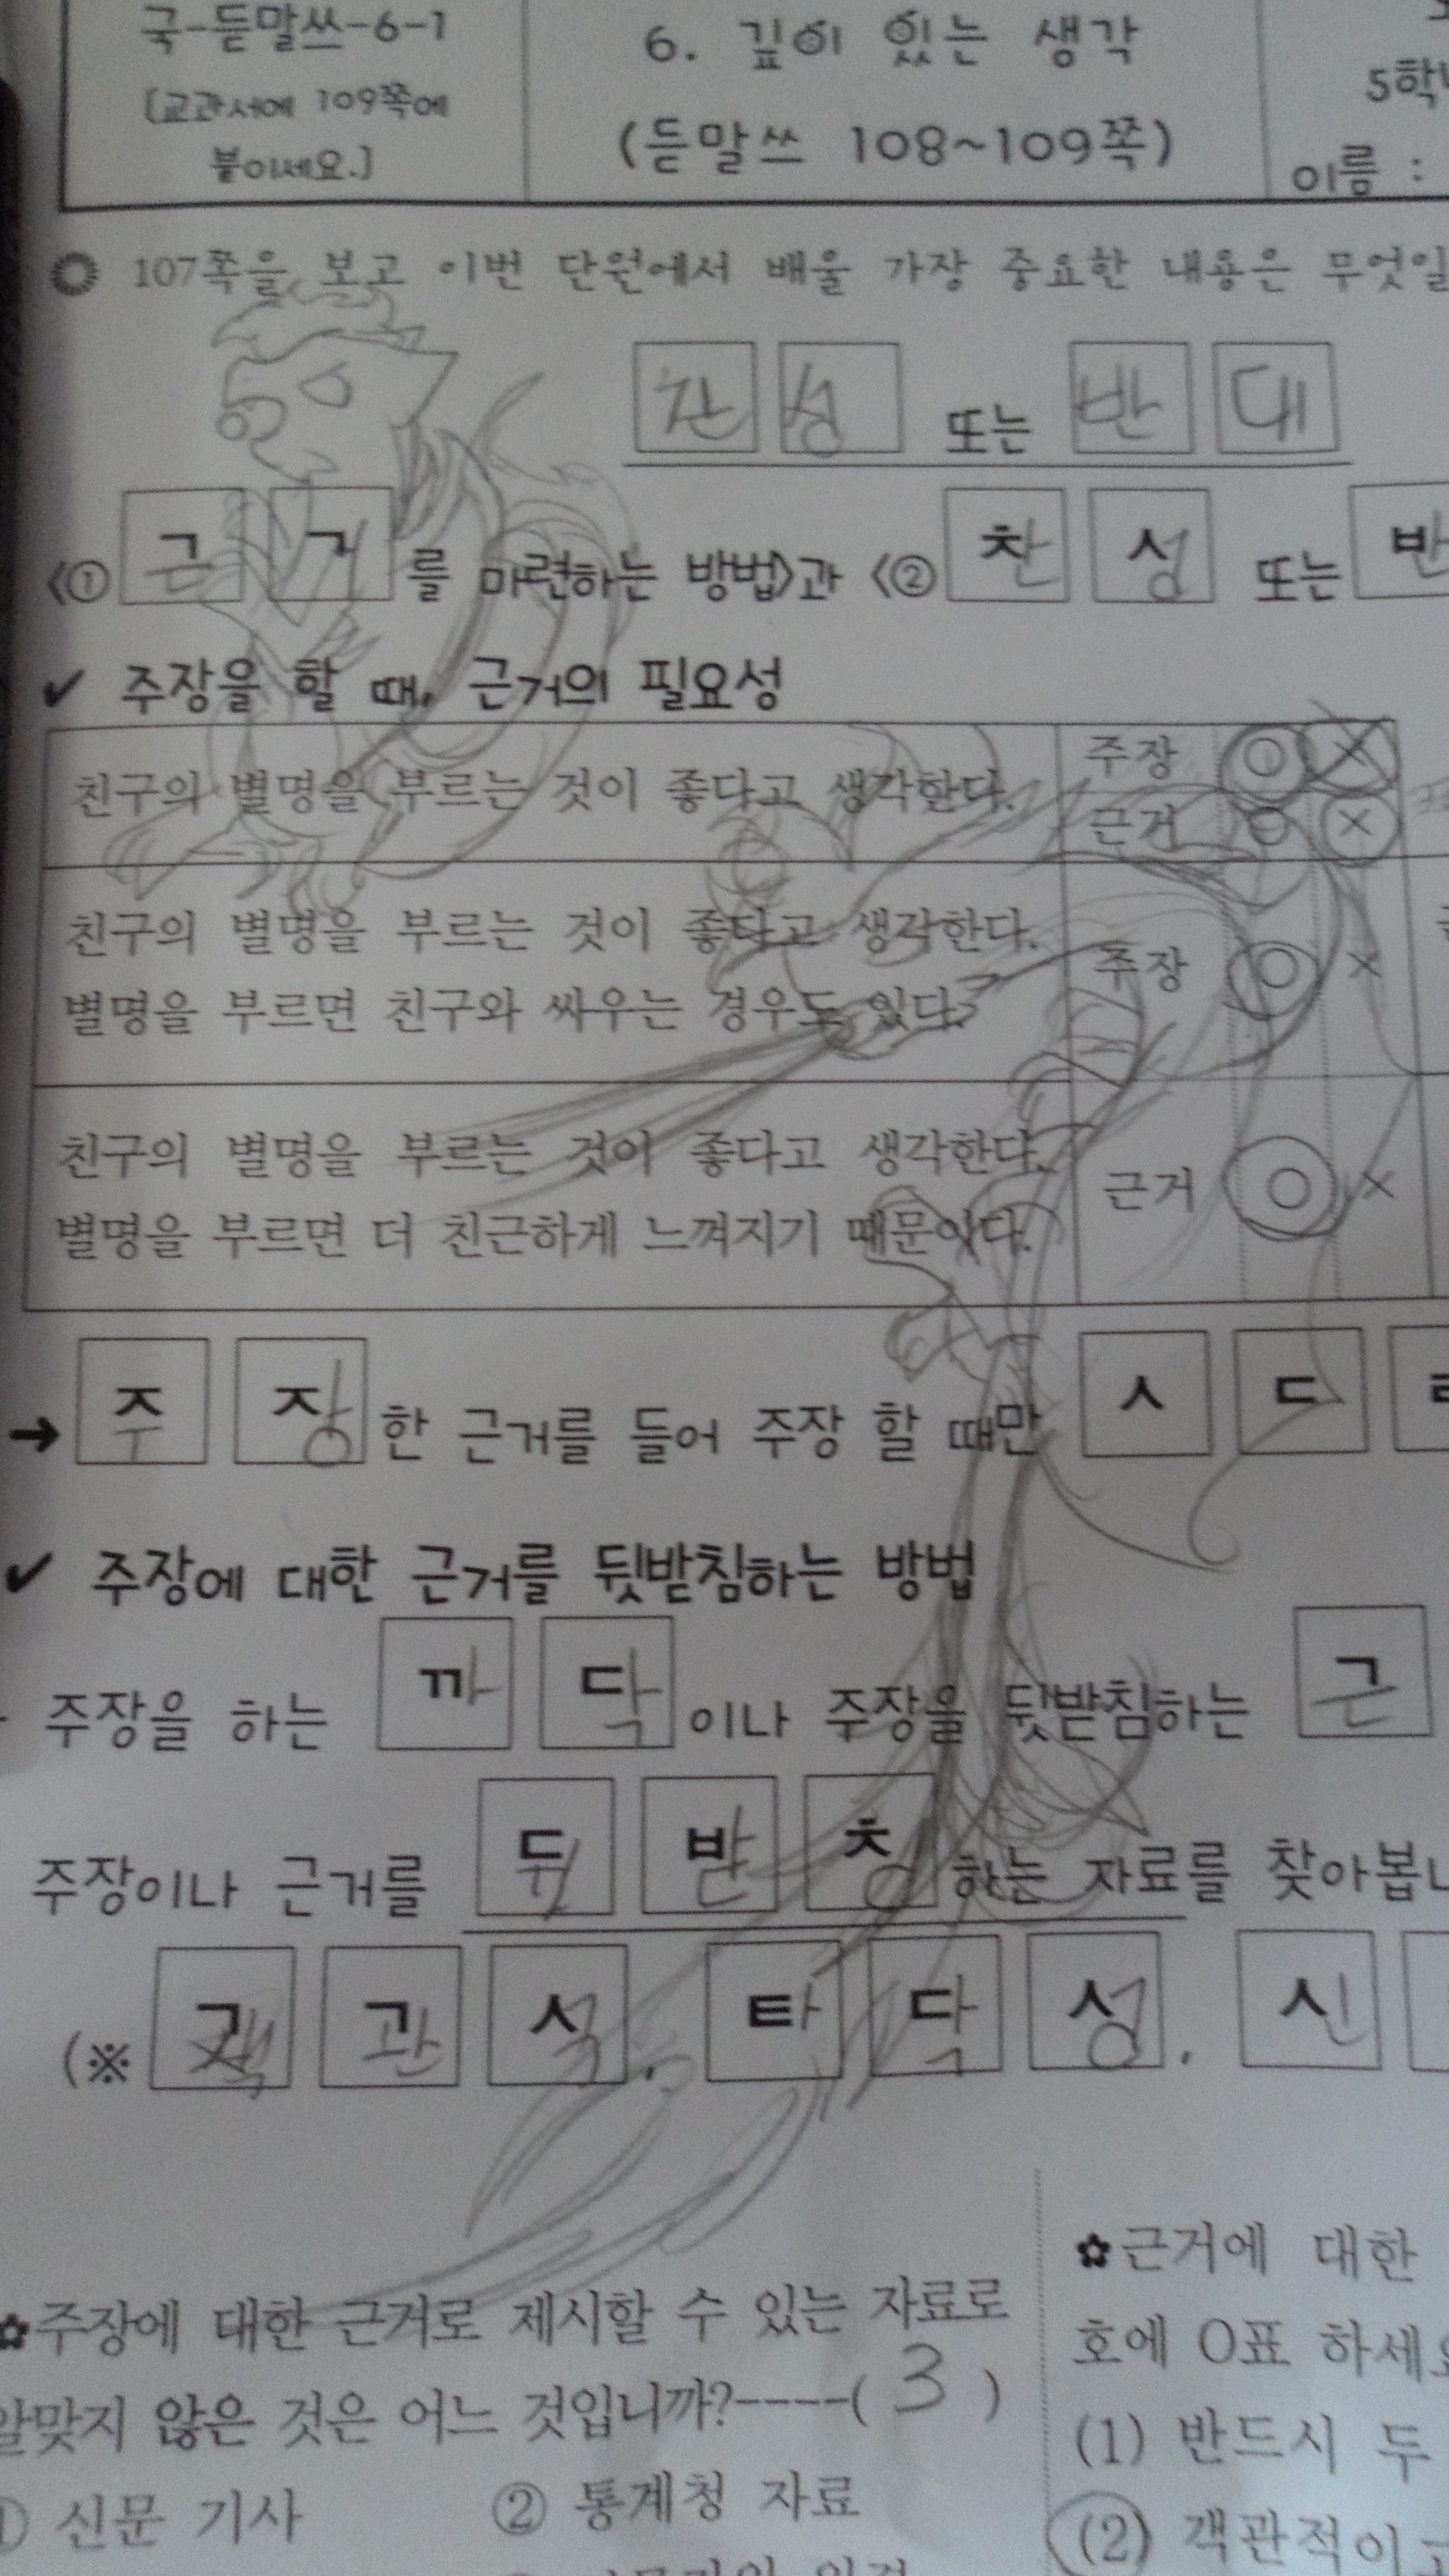 국-듣말쓰-6-1
[교과서에 109쪽에
붙이세요.]
6. 깊이 있는 생각
(듣말쓰 108~109쪽)
5학
이름 :
107쪽을 보고 이번 단원에서 배울 가장 중요한 내용은 무엇일
찬성 또는 반대
<① 근거를 마련하는 방법>과 <② 찬성 또는 반
✔ 주장을 할 때, 근거의 필요성
친구의 별명을 부르는 것이 좋다고 생각한다. 주장 ○ ×
근거 ○ ×
친구의 별명을 부르는 것이 좋다고 생각한다.
별명을 부르면 친구와 싸우는 경우도 있다. 주장 ○ ×
친구의 별명을 부르는 것이 좋다고 생각한다.
별명을 부르면 더 친근하게 느껴지기 때문이다. 근거 ○ ×
→ 주장한 근거를 들어 주장 할 때만 ㅅ ㄷ ㄹ
✔ 주장에 대한 근거를 뒷받침하는 방법
주장을 하는 까닥이나 주장을 뒷받침하는 근
주장이나 근거를 하는 자료를 찾아봅니
(※ 객관석, 타닥성, 신
✿주장에 대한 근거로 제시할 수 있는 자료로
알맞지 않은 것은 어느 것입니까?----( 3 )
① 신문 기사 ② 통계청 자료
✿근거에 대한
호에 O표 하세요
(1) 반드시 두
(2) 객관적이고